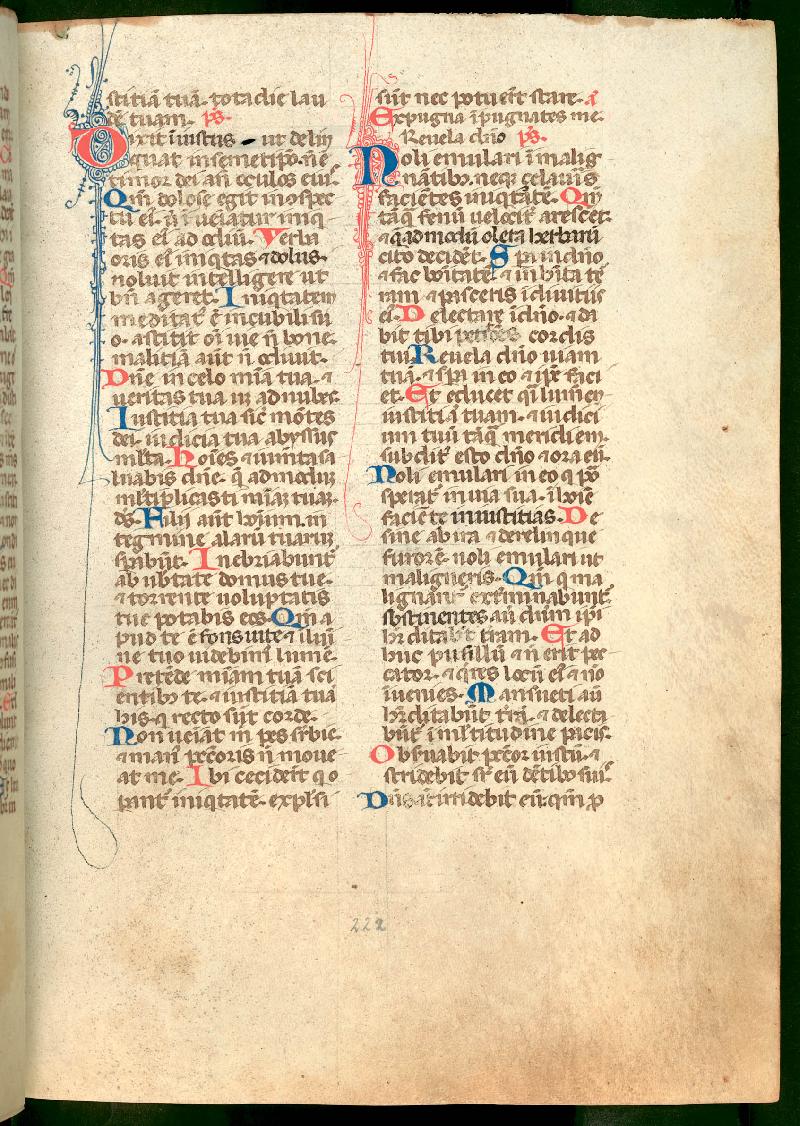 stitiā tuā· tota die lau
dē tuam· ps̄·
Dixit īiustus ut delin
quat in semetip̄o· nō ē
timor dei añ oculos eius·
Qm̄ dolose egit in ↄspec
tu eĩ· ut īueniatur iniq
tas eĩ ad odiū· Verba
oris eĩ iniqtas ⁊ dolus·
noluit intelligere ut
bn̄ ageret· Iniqtatem
meditat᷒ ē in cubili su
o· astitit oī uie n̄ bone·
malitiā aut̄ n̄ odiuit·
Dñe in celo mīa tua· ⁊
ueritas tua usq; ad nubes·
Iustitia tua sic̄ mōtes
dei· iudicia tua abyssus
mlta· hoīes ⁊ iumēta sa
luabis dñe· q̄ admodū
mltiplicasti mīaz tuaz·
ds̄· Filii aut̄ hoīum· in
tegmine alarū tuarū
sp̄abūt· Inebriabunt᷒
ab ub̄tate domus tue·
⁊ torrente uoluptatis
tue potabis eos· Qm̄ a
pud te ē fons uite ⁊ in lu
ne tuo uidebim᷒ lumē·
Pretēde mīam tuā sci
entib᷒ te· ⁊ iustitiā tuā
his· q̄ recto sūt corde·
Non ueīat m̄ pes suꝑbie·
⁊ man᷒ pcc̄oris n̄ moue
at me· Ibi cecider̄t q̄ o
pant᷒ iniqtatē· expl̄si
sūt nec potuer̄t stare· ā
Expugna īpugnātes me·
Reuela dn̄o ps̄·
Noli emulari ī malig
nātib᷒· neq; zelaueris
faciētes iniqtate· Qm̄
tāq̄ fenū uelocit᷒ arescet·
⁊ q̄ admodū olera herbarū
cito decidēt· Spa in dn̄o
⁊ fac bōitatē ⁊ inhīta t᷒
ram ⁊ pasceris ī diuitiis
eĩ· Delectare ī dn̄o· ⁊ da
bit tibi petitōes cordis
tui· Reuela dn̄o uiam
tuā· ⁊ sp̄a in eo ⁊ ip̄e faci
et· Et educet q̄i lumen
iustitiā tuam· ⁊ iudici
um tuū tāq̄ meridiem·
subdit᷒ esto dn̄o ⁊ ora eū·
Noli emulari in eo q̄ p̄o
sperat᷒ in uia sua· ī hoīe
faciēte iniustitias· De
sine ab ira ⁊ derelinque
furorē· noli emulari ut
maligneris· Qm̄ q̄ ma
lignānt᷒ ext᷒minabunt᷒·
sustinentes aū dn̄um ip̄i
hr̄editabūt t᷒ram· Et ad
huc pusillū ⁊ n̄ erit pec
cator· ⁊ q̄res locū eĩ ⁊ nō
īuenies· Mansueti aū
hr̄editabūt t᷒rā· ⁊ delecta
būt᷒ ī mltitudine pacis·
Obs᷒uabit pcc̄or iustū· ⁊
stridebit sꝑ eū dētib᷒ suis·
Dn̄s aūt irridebit eū· qm̄ p̄
222